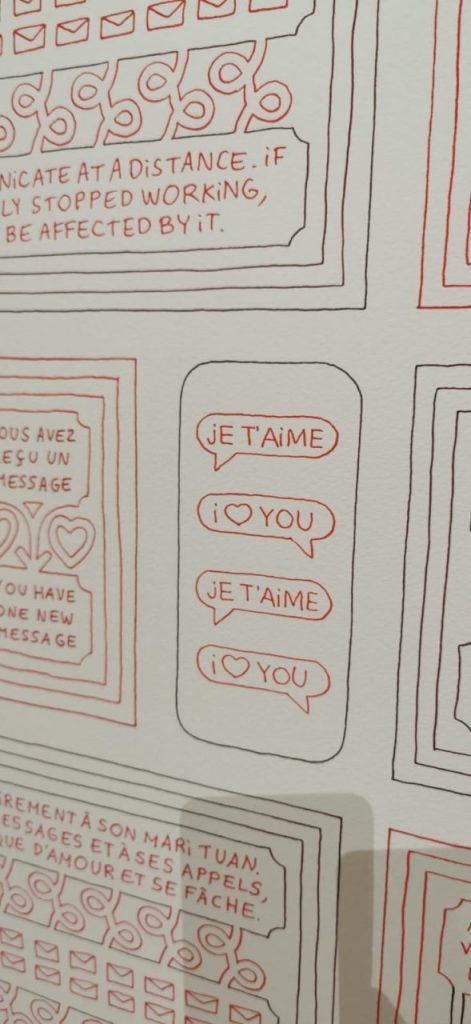 NiCATE AT A DiSTANCE. iF
LY STOPPED WORKiNG,
BE AFFECTED BY iT.
OUS AVEZ
EÇU UN
MESSAGE
OU HAVE
ONE NEW
MESSAGE
jE T'AiME
i ♡ YOU
jE T'AiME
i ♡ YOU
iREMENT À SON MARi TUAN.
ESSAGES ET À SES APPELS,
QUE D'AMOUR ET SE FÂCHE.